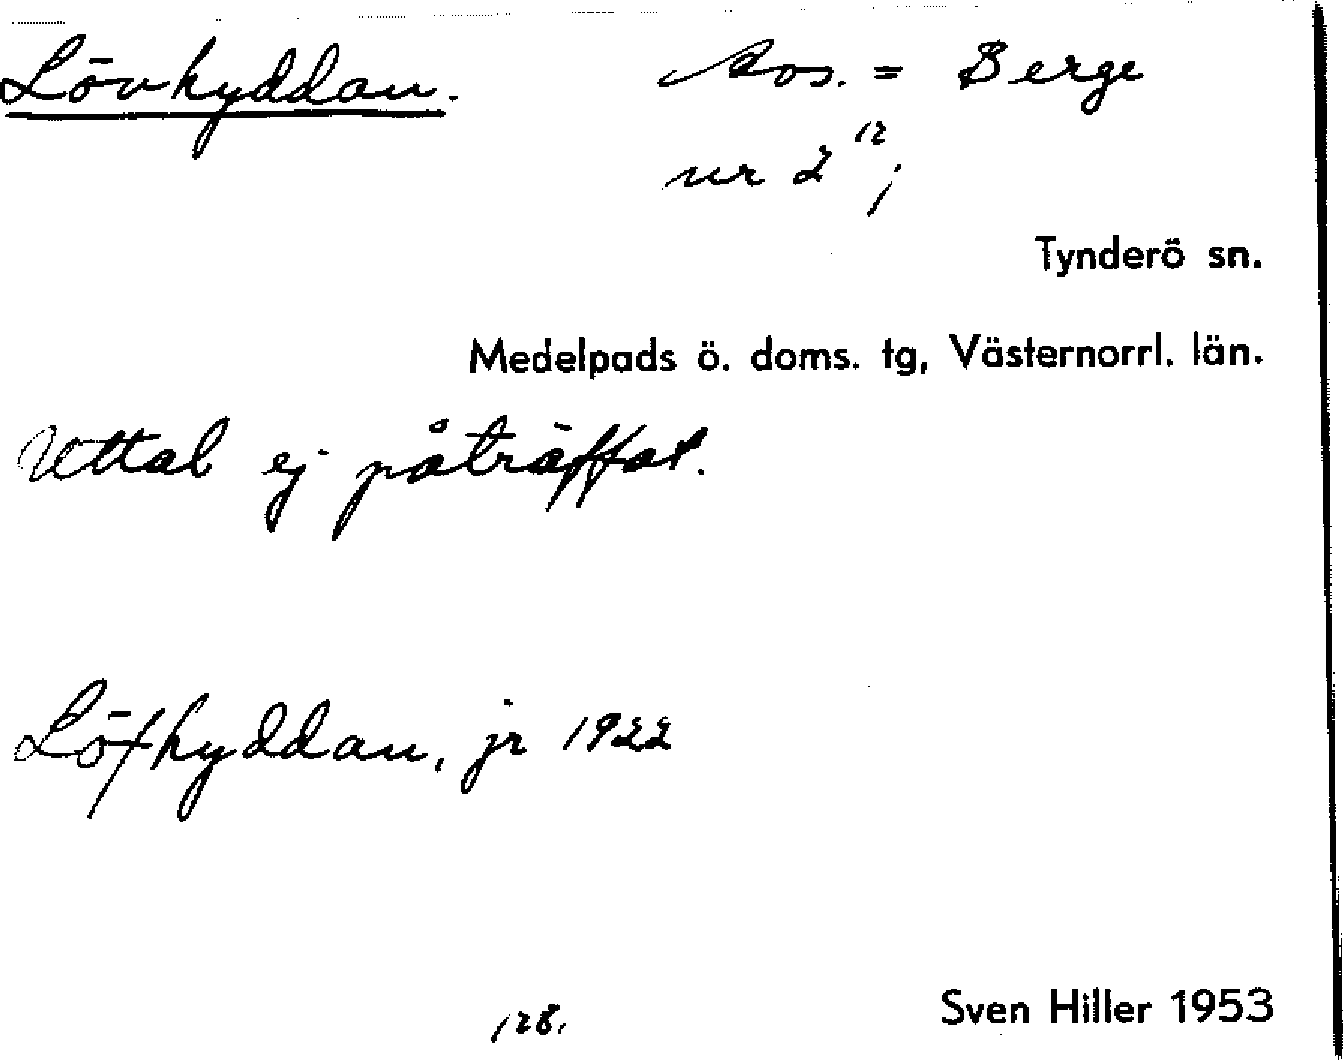 Lövhyddan. Aos. = Berge
nr 2¹²;
Tynderö sn.
Medelpads ö. doms. tg, Västernorrl. län.
Uttal ej påträffat.
Löfhyddan, jr 1922
128.
Sven Hiller 1953